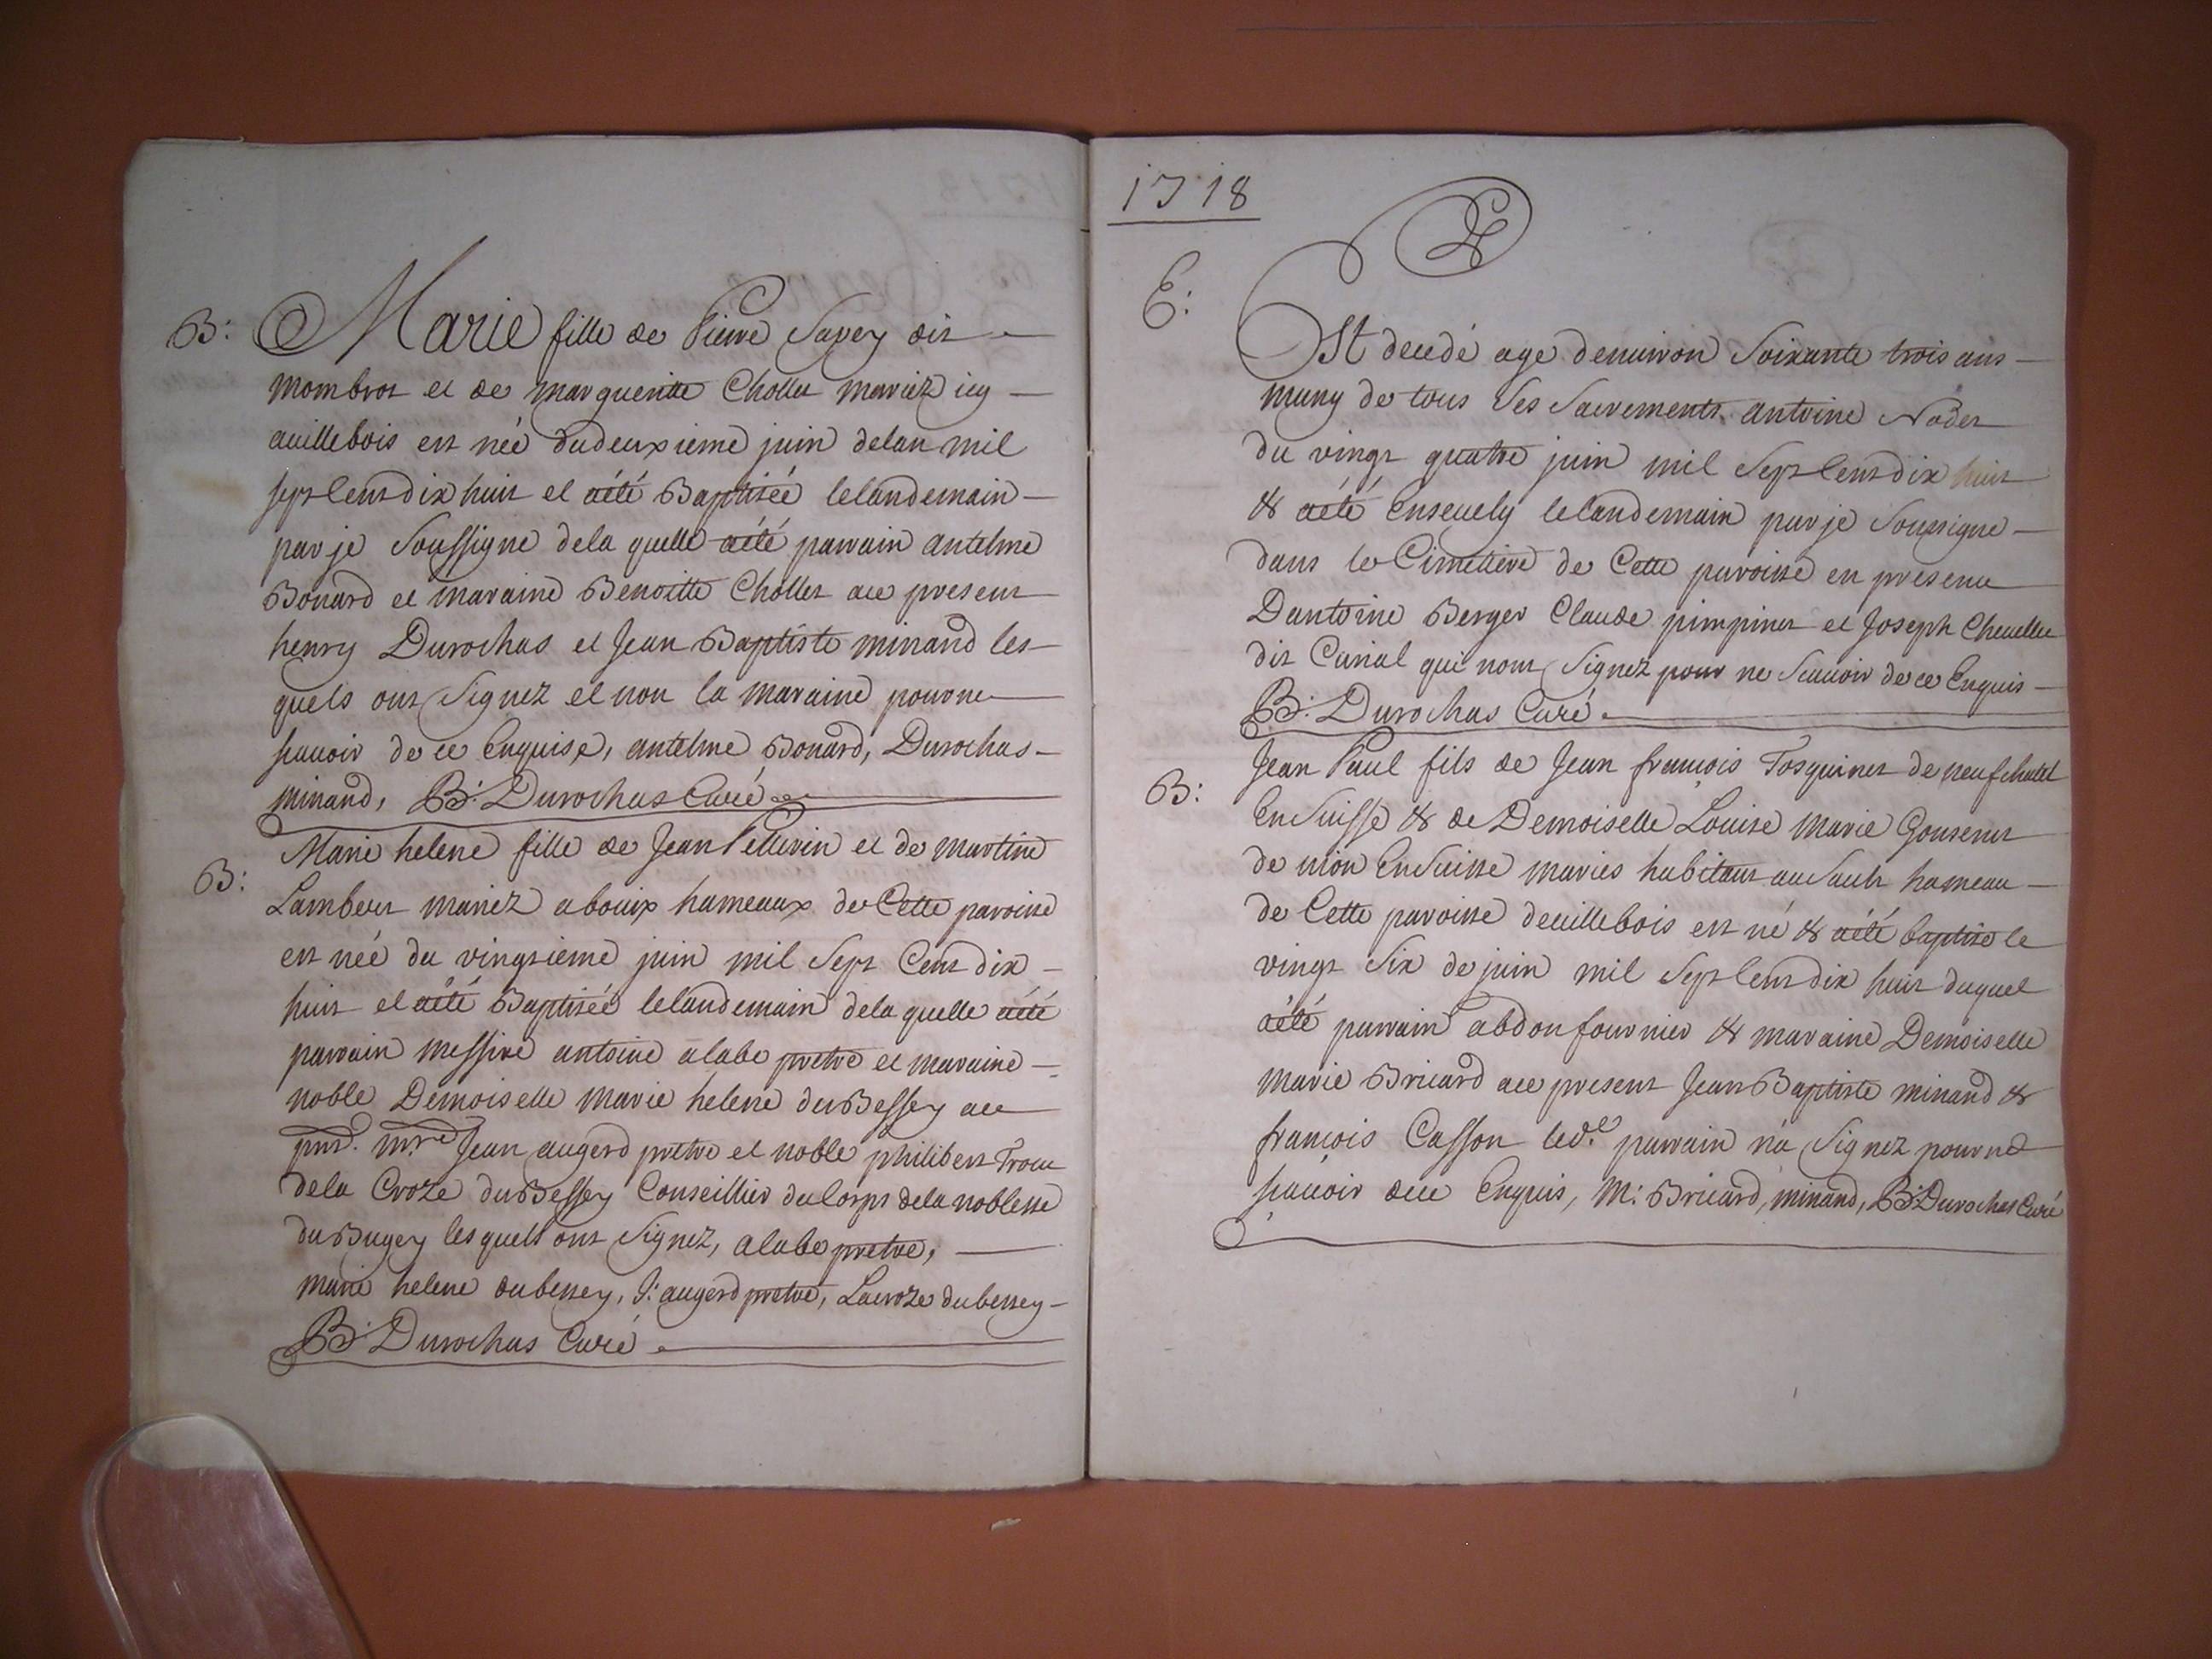 B: Marie fille de Pierre Savey dit
mombrot et de marguerite Chollet mariez icy
auillebois est née dudeuxieme juin delan mil
sept Cent dix huit et aété Baptisée lelandemain
par je Soussigne dela quelle aété parrain antelme
Bonard et maraine Benoitte Chollet ace present
henry Durochas et Jean Baptiste minand les
quels ont Signez et non la maraine pour ne
scauoir de ce Enquise, antelme Bonard, Durochas
minand, B: Durochas Curé
B: Marie helene fille de Jean Pellerin et de martine
Lambert mariez abouix hameaux de Cette paroisse
est née du vingtieme juin mil Sept Cent dix
huit et aété Baptisée lelandemain dela quelle aété
parrain messire antoine alabe pretre et maraine
noble Demoiselle marie helene duBessey ace
pnt. mre Jean augerd pretre et noble philibert Trocu
dela Croze duBessey Conseillier du Corps dela noblesse
du Bugey les quels ont Signez, alabe pretre,
marie helene dubessey, J: augerd pretre, Lacroze dubessey
B: Durochas Curé
1718
E: Est decedé age denuiron Soixante trois ans
muny de tous Ses Sacrements antoine Nodet
du vingt quatre juin mil Sept Cent dix huit
& aété Enseuely lelandemain par je Soussigne
dans le Cimetiere de Cette paroisse en presence
Dantoine Berger Claude pimpinet et Joseph Cheuellu
dit Curial qui nont Signez pour ne Scauoir de ce Enquis
B: Durochas Curé
B: Jean Paul fils de Jean francois Tosquinet de neufchatel
En Suisse & de Demoiselle Louise Marie Gonseret
de nion En Suisse mariés habitant au Sault hameau
de Cette paroisse deuillebois est né & aété baptise le
vingt Six de juin mil Sept Cent dix huit duquel
aété parrain abdon fournier & maraine Demoiselle
marie Bricard ace present Jean Baptiste minand &
francois Casson led.t parrain n'a Signez pour ne
scauoir dece Enquis, M: Bricard, minand, B: Durochas Curé